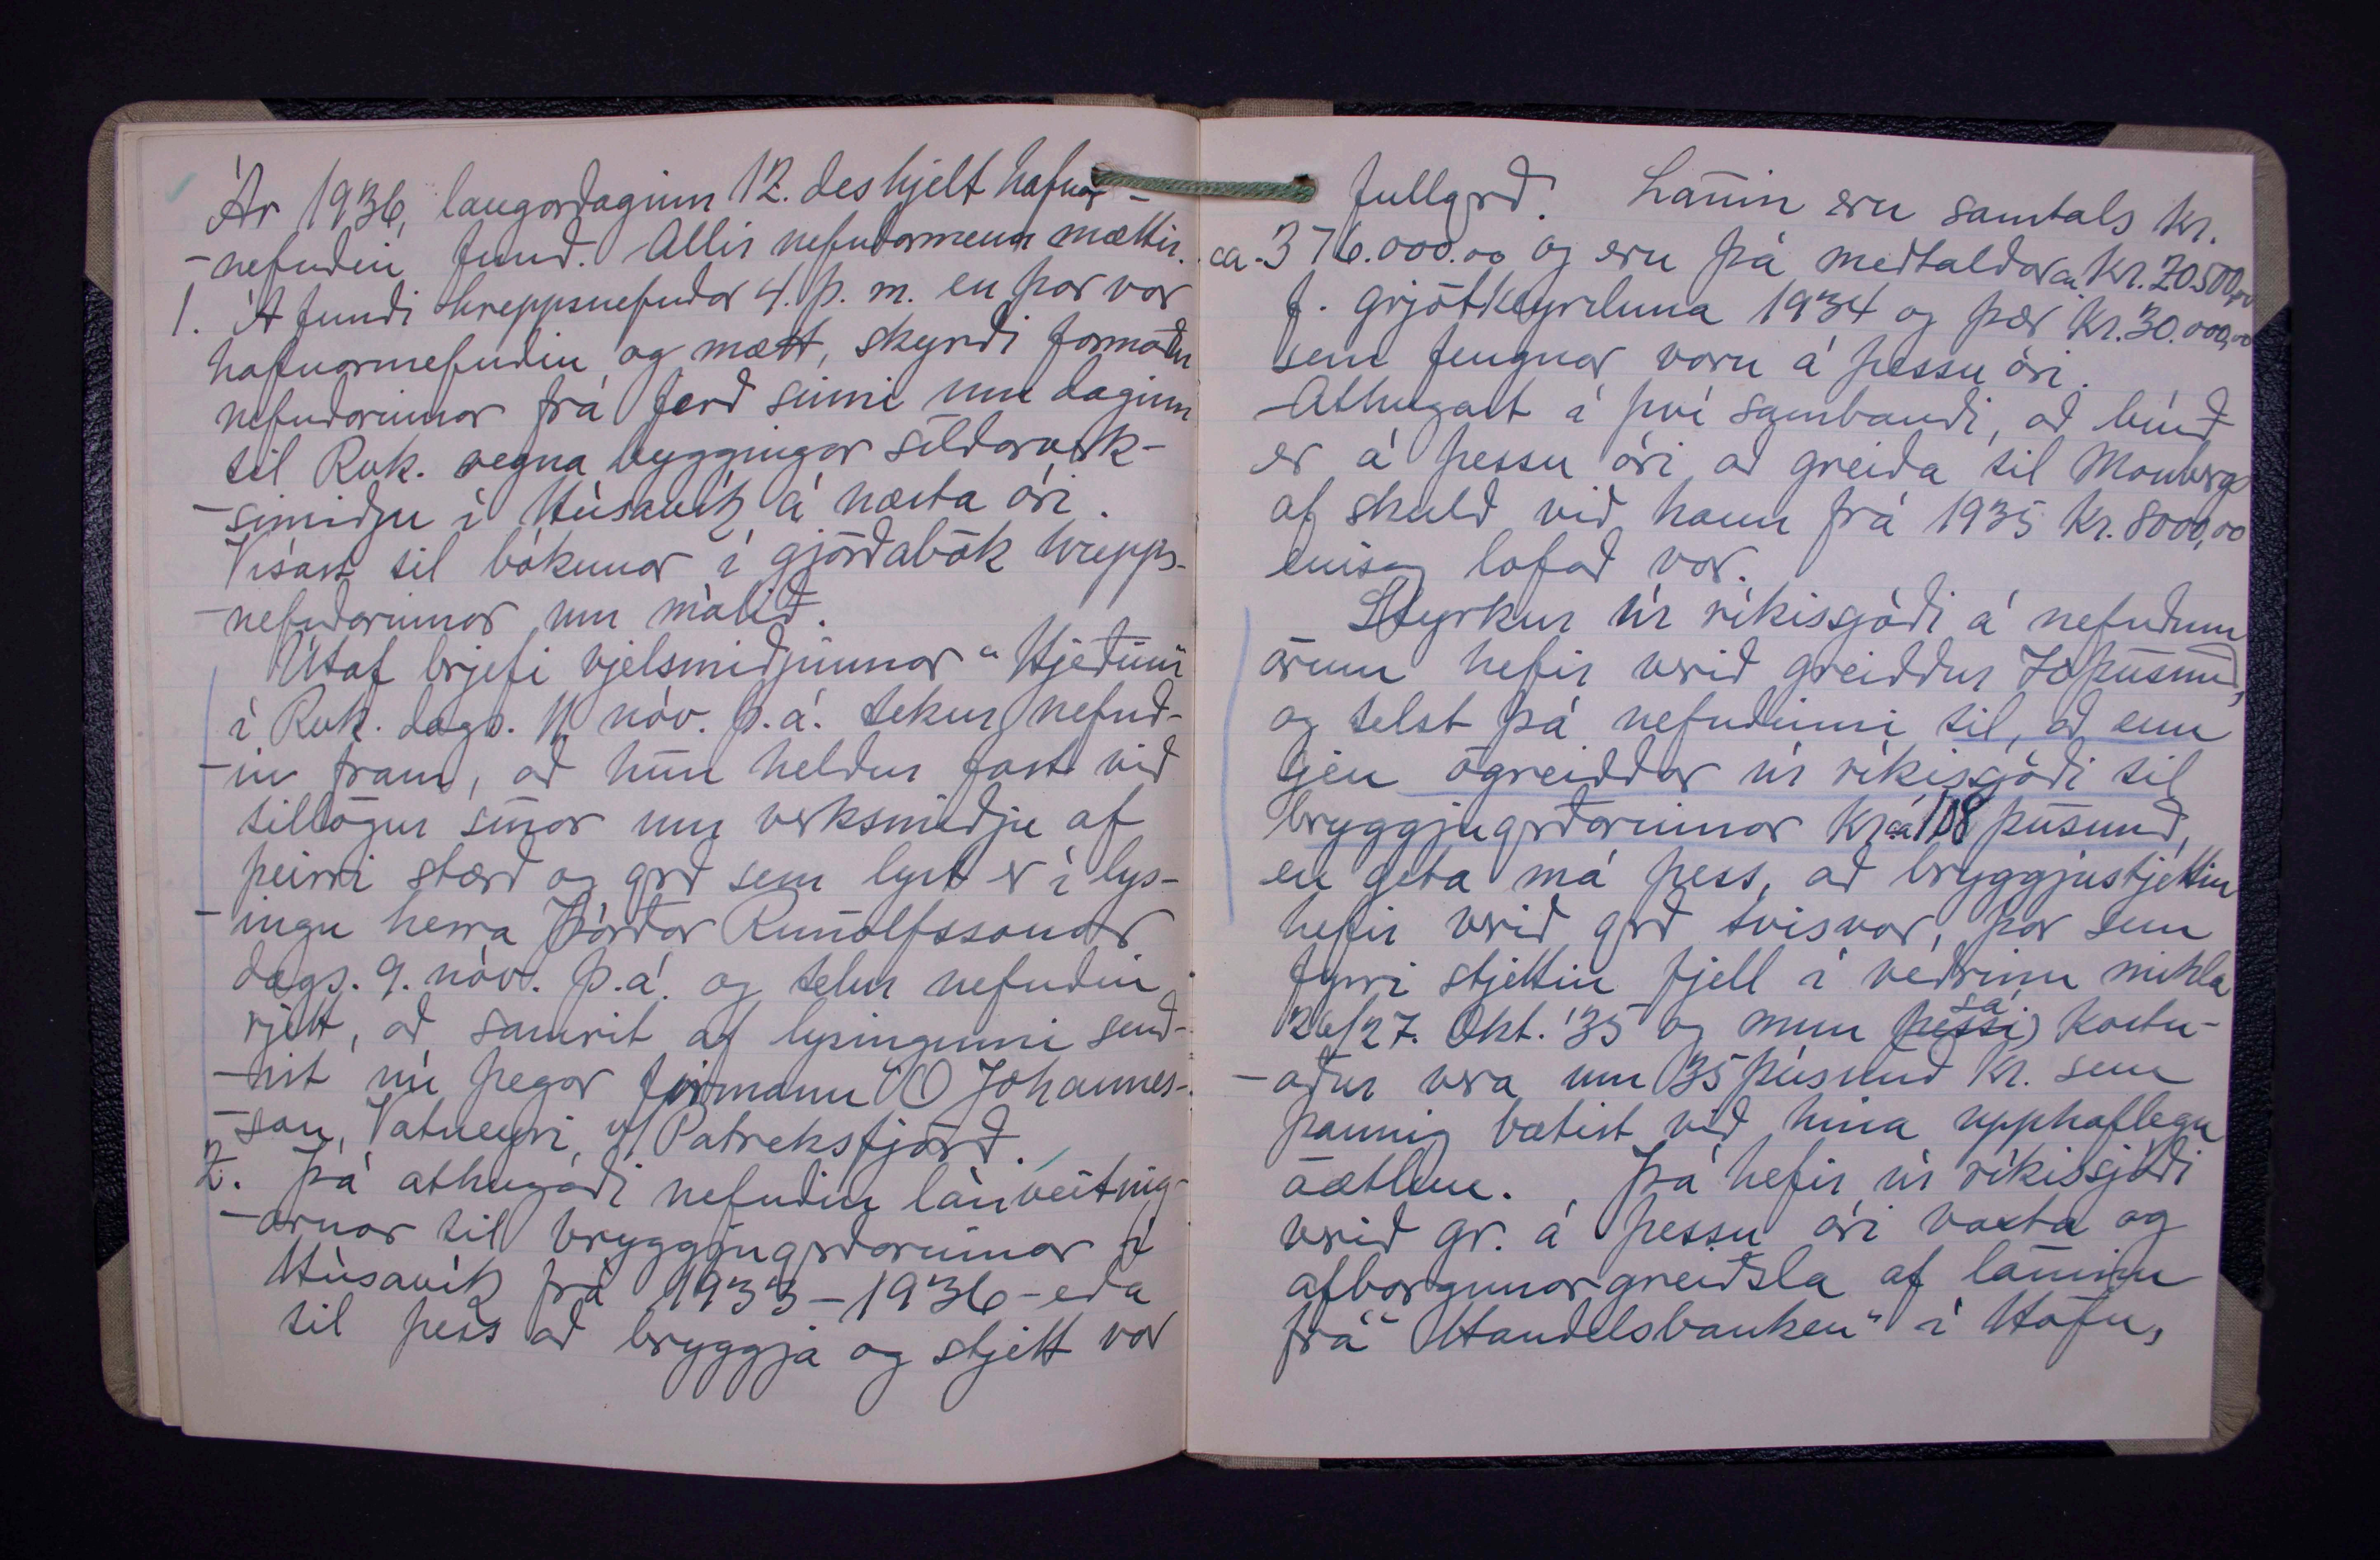 Ár 1936, laugardaginn 12. des hjelt hafnar-
-nefndin fund. Allir nefndarmenn mættir.
1. Á fundi hreppsnefndar 4. þ. m. en þar var
hafnarnefndin og mætt, skyrði formaðu
nefndarinnar frá ferð sinni um daginn
til Rvk. vegna byggingar síldarverk-
-smiðju í Húsavík á næsta ári.
Vísast til bókunar í gjörðabók hrepps-
-nefndarinnar um málið.
Útaf brjefi vjelsmiðjunnar "Hjeðinn"
í Rvk. dags. 11 nóv. þ.á. tekur nefnd-
-in fram, að hún heldur fast við
tillögur sínar um verksmiðju af
þeirri stærð og grð sem lyst er í lys-
-ingu herra Þórðar Runólfssonar
dags. 9. nóv. þ.á. og telur nefndin
rjett, að samrit af lysingunni send-
-ist nú þegar firmanu "O Jóhannes-
-son, Vatneyri, v/ Patreksfjörð.
2. Þá athugaði nefndin lánveiting-
-arnar til bryggjugrðarinnar í
Húsavík frá 1933-1936 - eða
til þess að bryggja og stjett var
fullgrð. Lánin eru samtals kr.
ca. 376.000.00 og eru þá meðtaldar ca. kr. 20.500,00
f. grjótkeyrsluna 1934 og þær kr. 30.000,00
sem fengnar voru á þessu ári.
Athugast í því sambandi, að búið
er á þessu ári að greiða til Monberg
af skuld við hann frá 1935 kr. 8000,00
einsog lofað var.
Styrkur úr ríkissjóði á nefndum
árum hefir verið greiddur 70 þúsund,
og telst þá nefndinni til, að enn
sjeu ógreiddar úr ríkissjóði til
bryggjugrðarinnar kr. ca 108 þúsund,
en geta má þess, að bryggjustjettin
hefir verið grð tvisvar, þar sem
fyrri stjettin fjell í veðrinu mikla
26/27. Okt. '35 og mun þessi sá kostn-
-aður vera um 35 þúsund kr. sem
þannig bætist við hina upphaflegu
áætlun. Þá hefir úr ríkissjóði
verið gr. á þessu ári vaxta og
afborgunargreiðsla af láninu
frá "Handelsbanken" í Höfn,